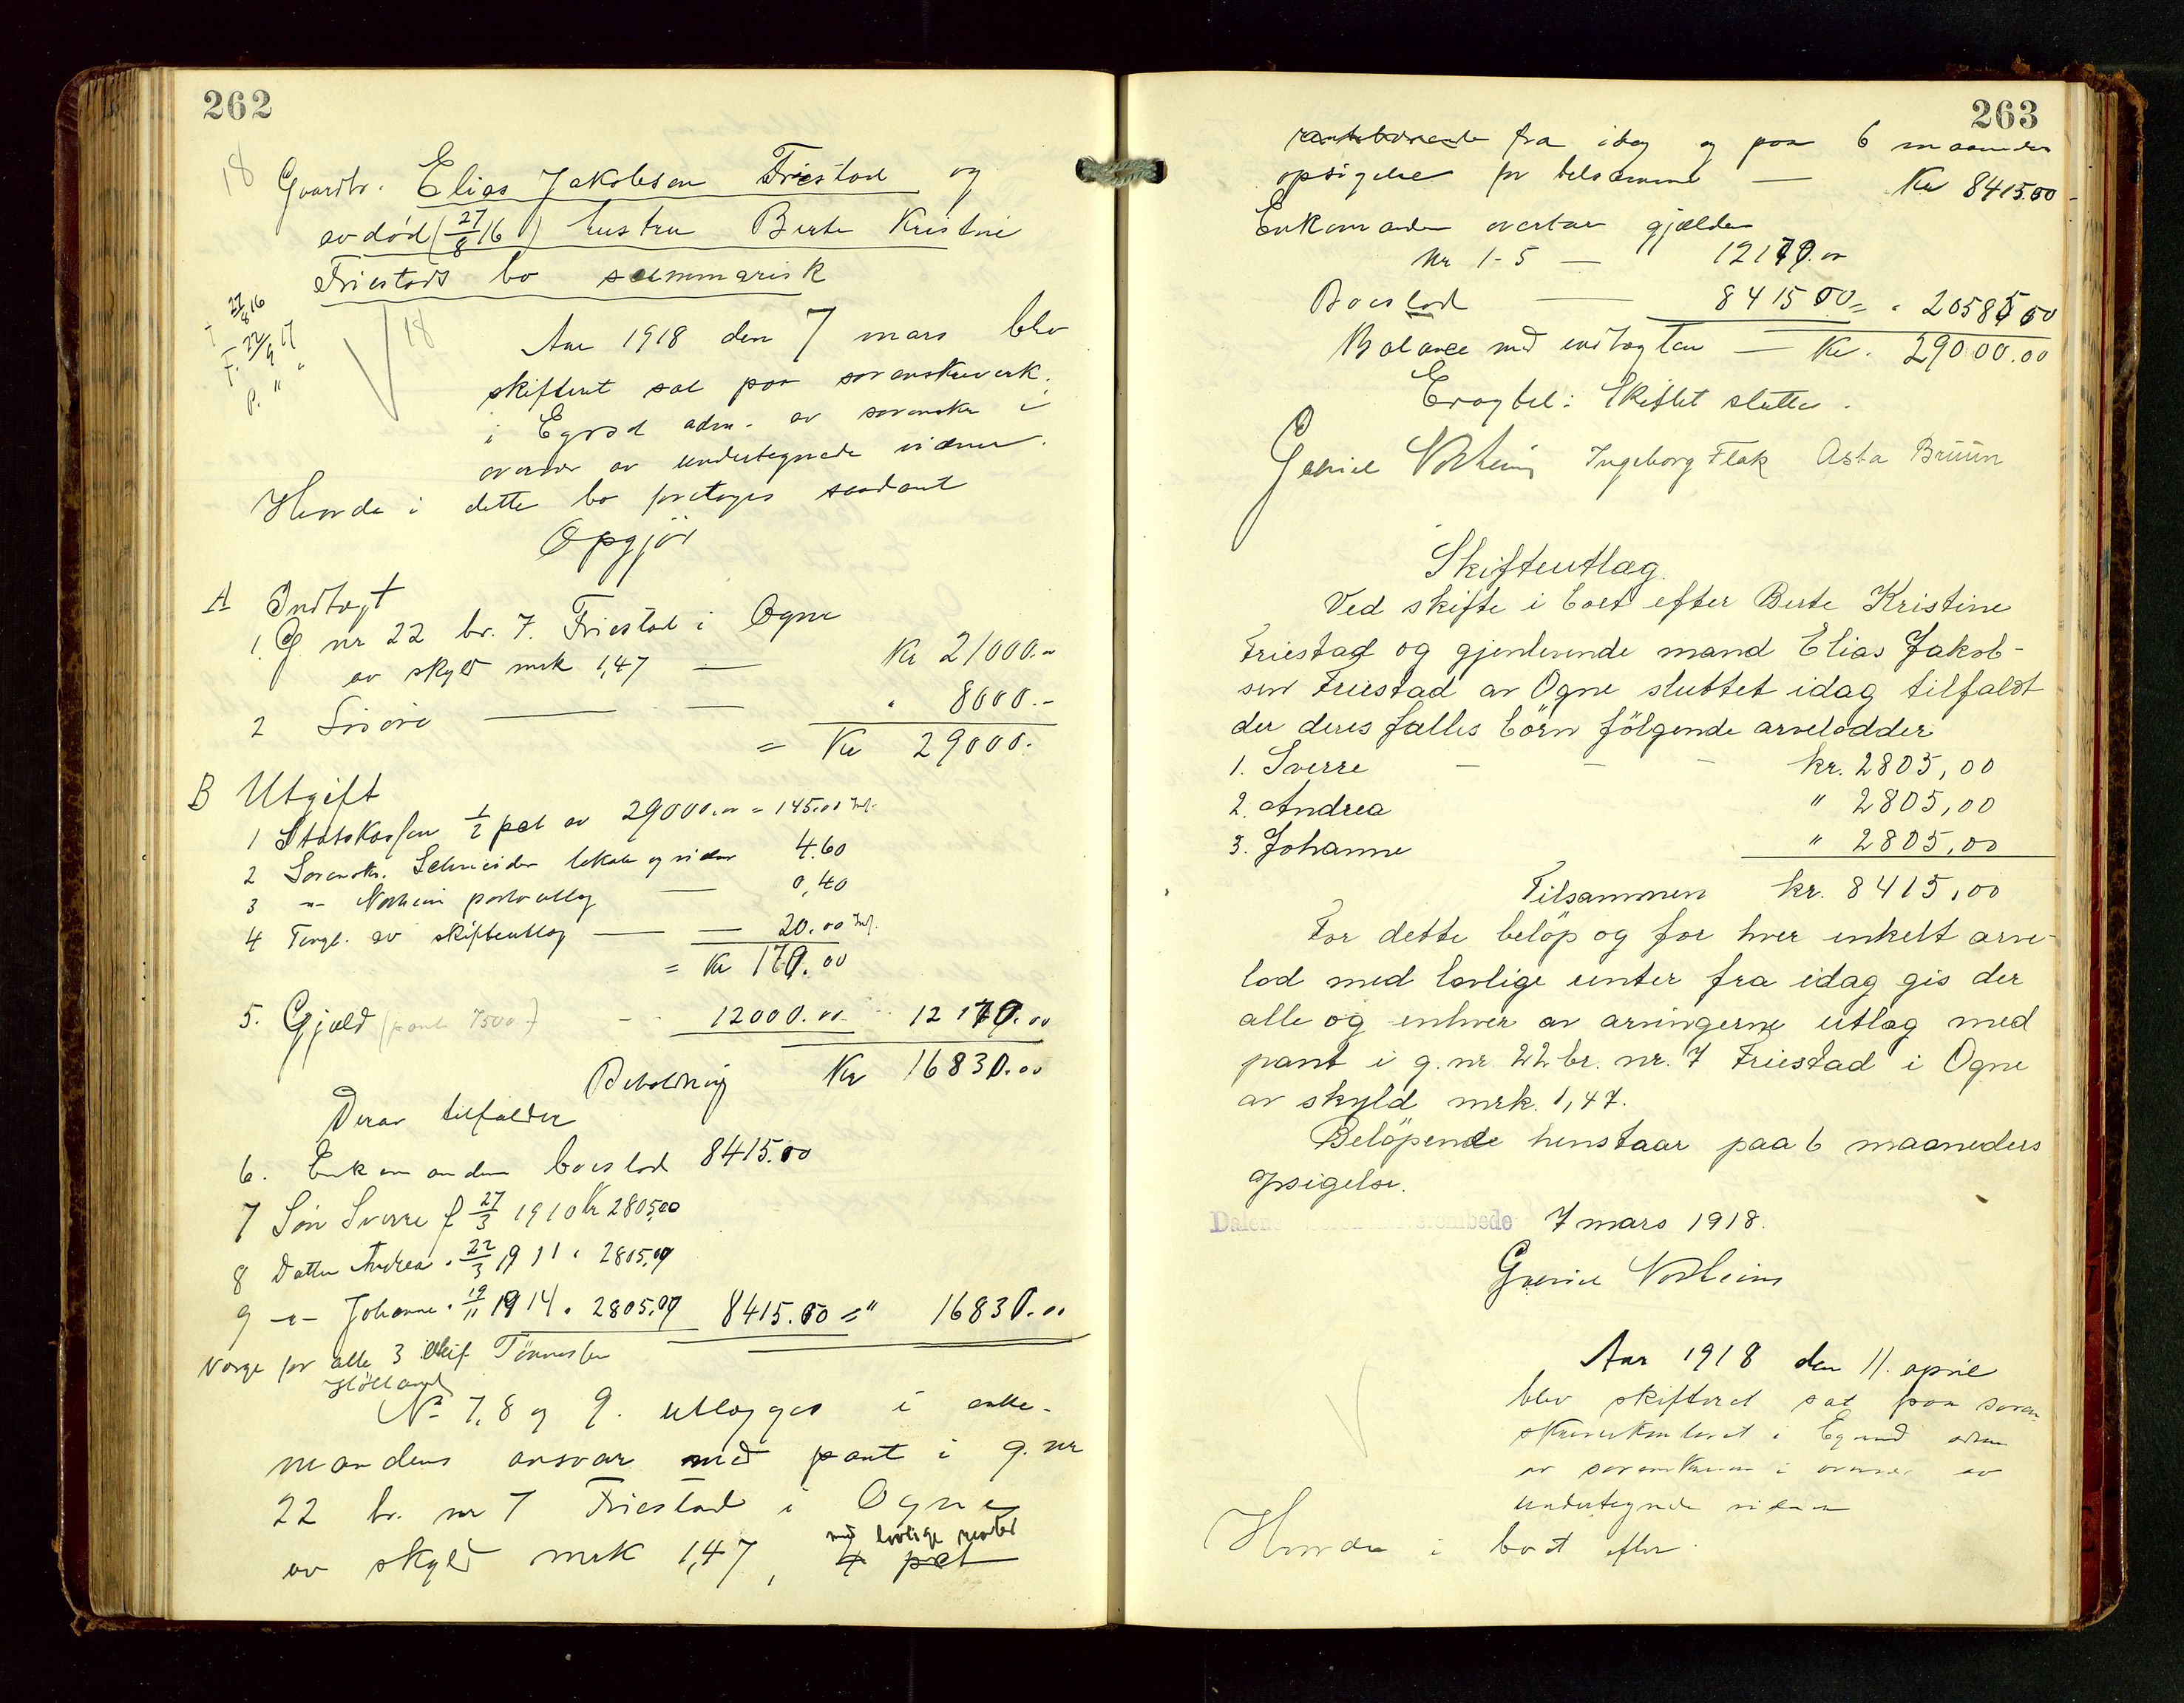 262
18 Gaardbr. Elias Jakobsen Friestad og
avdød (27/8 16) hustru Berte Kristine
Friestads bo summarisk
27/8 16
F. 22/9 17
P. " "
18
Aar 1918 den 7 mars blev
skifteret sat paa sorenskriverk.
i Egrsd adm. av sorenskr i
overvær av undertegnede vidner.
Hvorda i dette bo foretoges saadant
Opgjör
A Indtægt
1. G nr 22 br. 7. Friestad i Ogne
av skyld mrk 1,47 — Kr 21000.-
2 Lösöre — — " 8000.-
= Kr 29000.
B Utgift
1 Statskassen 1/2 pct av 29000.00 = 145.00
2 Sorenskr. Schneider lokale og vidner 4.60
3 -"- Norheim portoutlæg — 0,40
4 Tingl. av skifteutlæg — — 20.00
= Kr 170.00
5. Gjæld (pant 7500) - 12000.00 12170.00
Beholdning Kr 16830.00
Derav tilfalder
6. Enkemanden boeslod 8415.00
7 Sön Sverre f 27/3 1910 kr 2805.00
8 Datter Andrea " 22/3 1911 " 2805.00
9 -"- Johanne " 19/11 1914 " 2805.00 8415.00 = " 16830.00
Verge for alle 3 Tönnesen
Hölland
No 7, 8 og 9. utlægges i enke-
mandens ansvar med pant i g. nr
22 br. nr 7 Friestad i Ogne
med lovlige renter
av skyld mrk 1,47, 4 pct
263
rentebærende fra idag og paa 6 maaneders
opsigelse for belöpene — Kr 8415.00
Enkemanden overtar gjælden
Nr 1-5 — 12170.00
Boeslod — 8415 00 = " 20585 00
Balance med indtægten — Kr. 29000.00
Eragtet: Skiftet sluttes.
Gabriel Norheim Ingeborg Flak Asta Brüün
Skifteutlæg.
Ved skifte i boet efter Berte Kristine
Friestad og gjenlevende mand Elias Jakob-
sen Friestad av Ogne sluttet idag tilfaldt
der deres fælles börn fölgende arvelodder:
1. Sverre - - - kr. 2805,00
2. Andrea " 2805,00
3. Johanne " 2805,00
Tilsammen kr. 8415,00
For dette belöp og for hver enkelt arve-
lod med lovlige renter fra idag gis der
alle og enhver av arvingerne utlæg med
pant i g. nr 22 br. nr. 7 Friestad i Ogne
av skyld mrk. 1,47.
Belöpende henstaar paa 6 maaneders
opsigelse.
Dalene 7 mars 1918.
Gabriel Norheim
Aar 1918 den 11. april
blev skifteret sat paa soren-
skriverkontoret i Egrsund adm
av sorenskriveren i overvær av
undertegnede vidner
Hvorda i boet efter